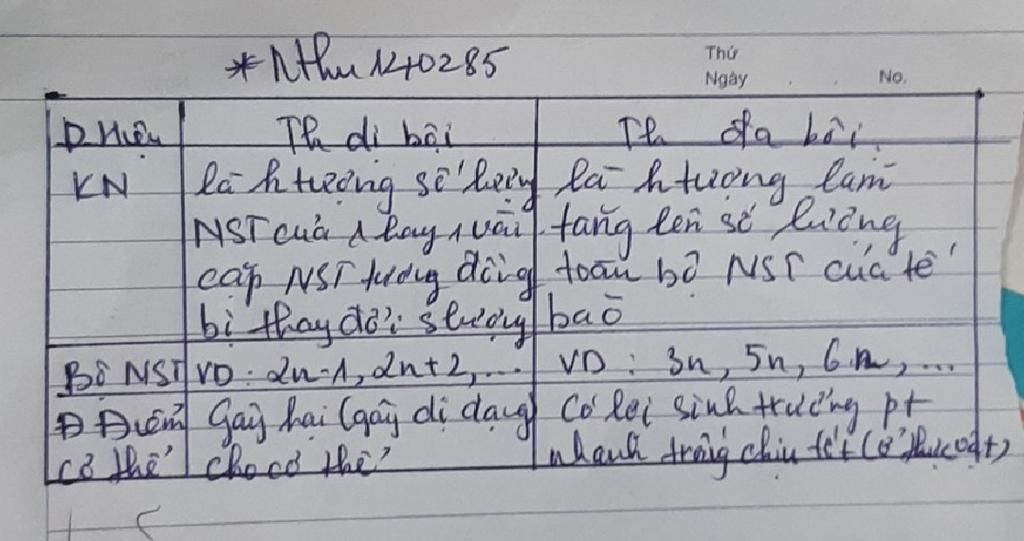 *Nthu1240285
Thứ
Ngày . . No.
Đ.Hiệu Th dị bội Th đa bội
KN là htượng số lượng là htượng làm
NST của 1 hay 1 vài tăng lên số lượng
cặp NST tương đồng toàn bộ NST của tế
bị thay đổi slượng bào
Bộ NST VD: 2n-1, 2n+2,... VD: 3n, 5n, 6n,...
Đ Điểm Gây hại (gây dị dạng) Có lợi sinh trưởng pt
cơ thể cho cơ thể nhanh chịu tốt (ở thực vật)